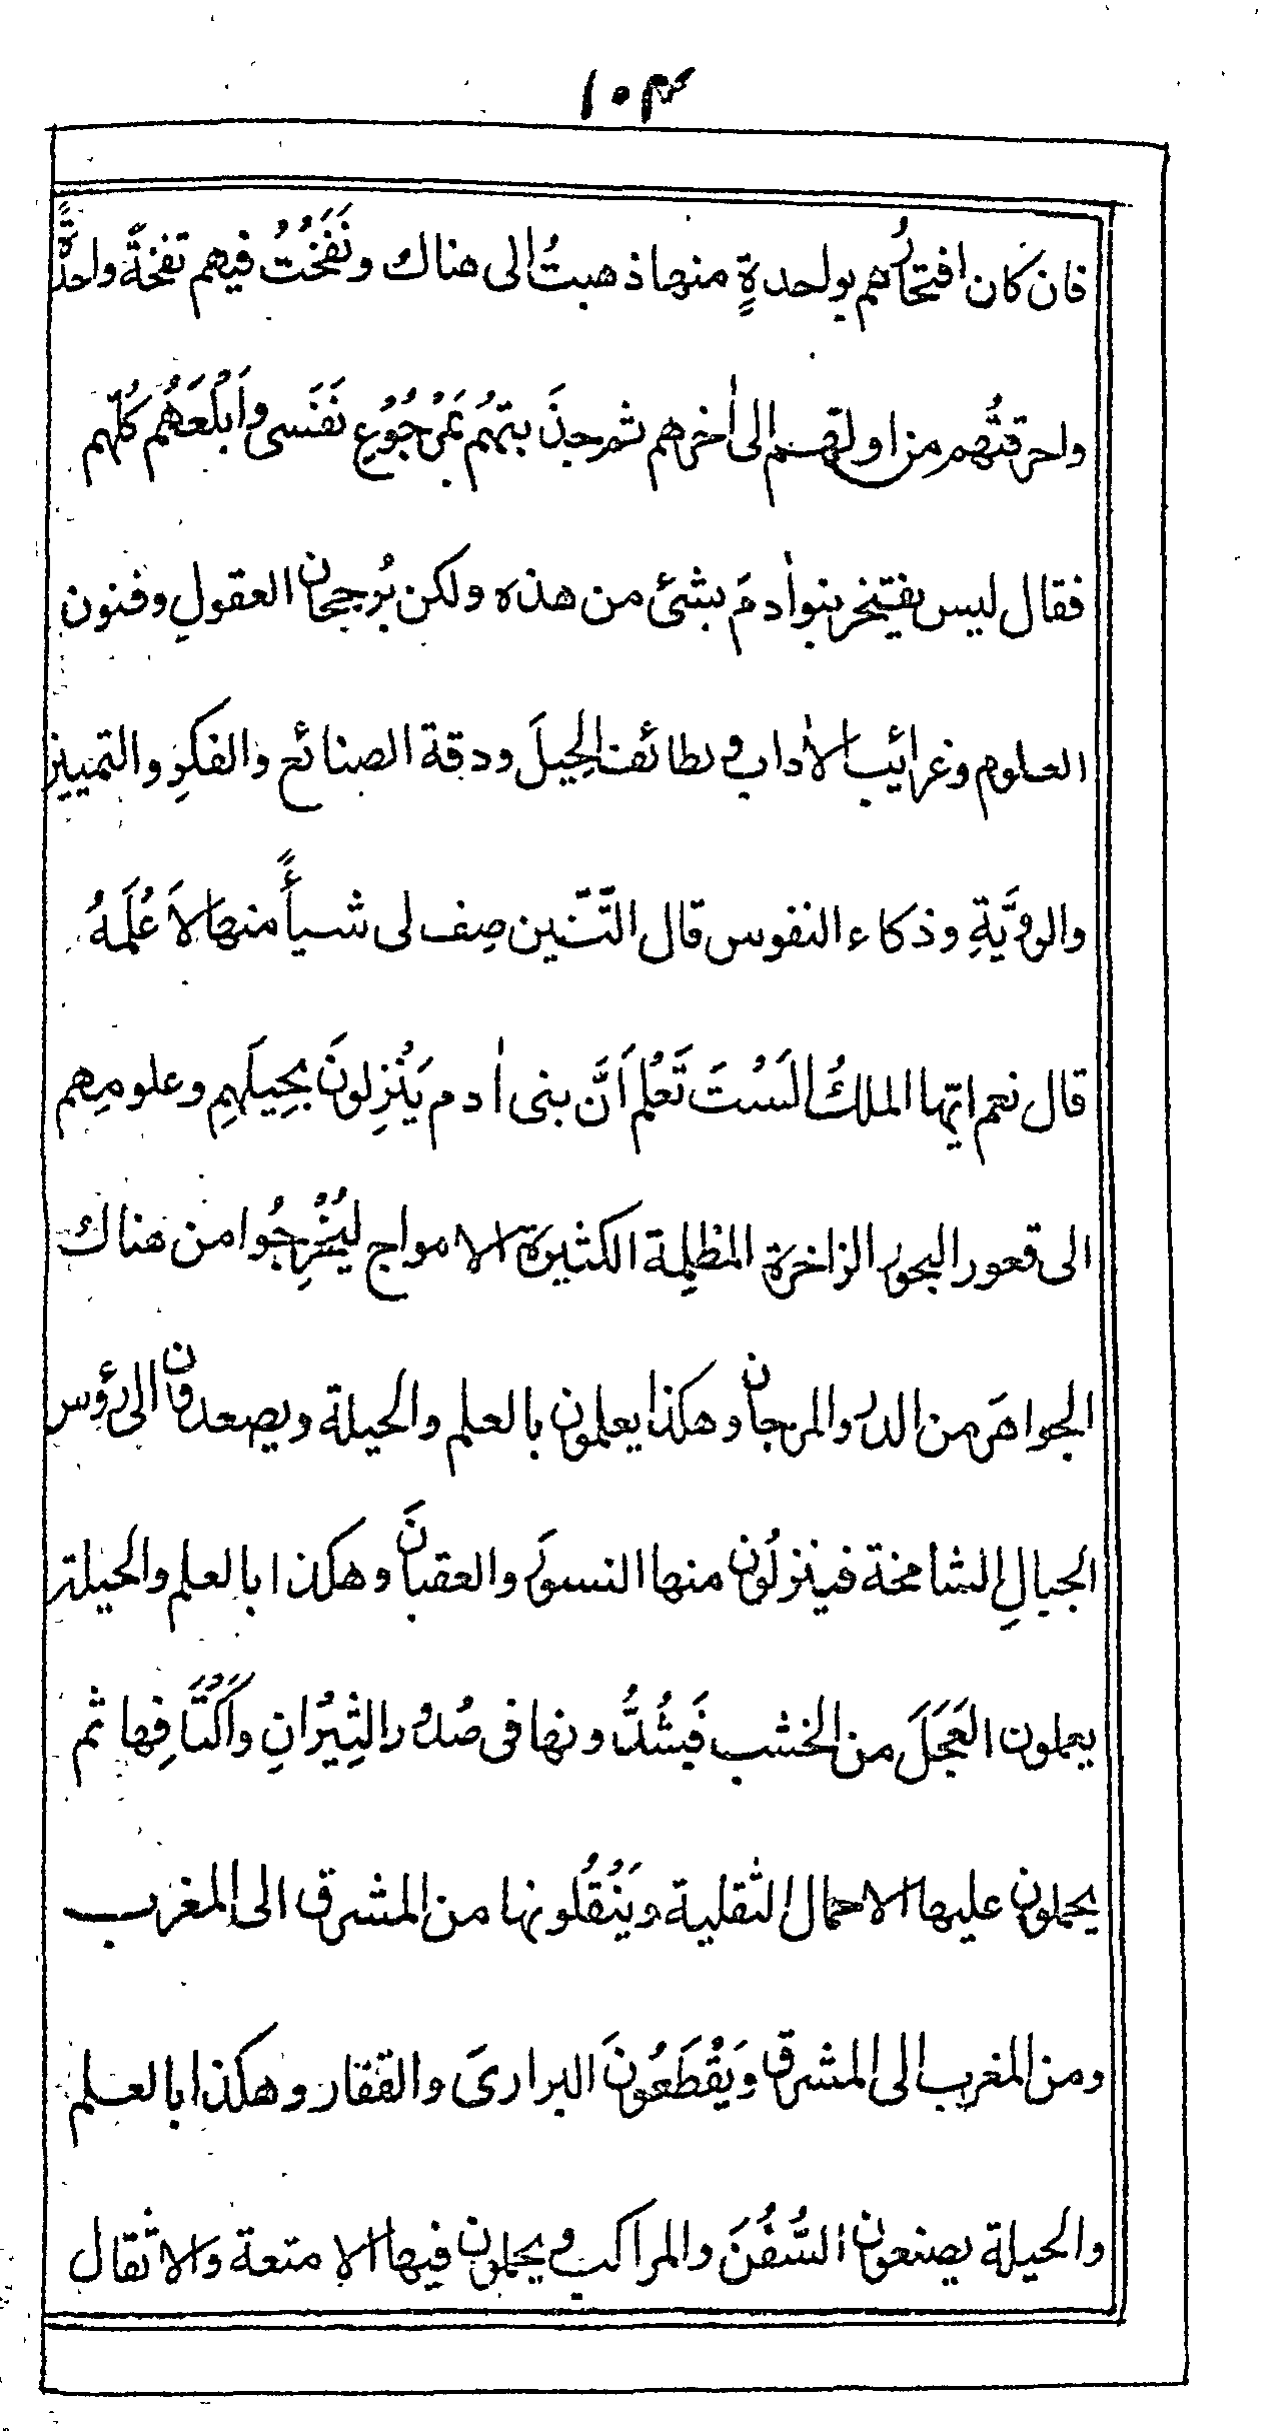 ١٠٣
فان كان افتخارُهم بواحدةٍ منها ذهبتُ الى هناك ونَفَخْتُ فيهم نفخةً واحدةً
واحرقتُهم من اولهم الى اٰخرهم ثم جذَبتهُم بَمرْجُوُعِ نَفَسى واَبْلَعَهُم كُلّهم
فقال ليس يفتخر بنو اٰدمَ بشئ من هذه ولكن بُرجحان العقولِ وفنون
العلوم وغرائيب الاٰداب ولطائف الحِيلَ ودقة الصنائع والفكرِ والتمييز
والروِيَّةِ وذكاء النفوس قال التّنّين صِف لى شيأً منها لاَعُلَمهُ
قال نعم ايّها الملكُ اَلَسْتَ تَعْلم اَنَّ بنى اٰدم يَنْزِلونَ بحِيَلهِم وعلومِهم
الى قعور البحور الزاخرة المظلِمة الكثيرة الامواج ليُخْرِجُوا من هناك
الجواهَر من الدر والمرجان وهكذا يعلمون بالعلم والحيلة ويصعدون الى رؤس
الجبالِ الشامخة فينزلُون منها النسورَ والعقبانَ وهكذا بالعلم والحيلة
يعملون العَجَلَ من الخشب فَيشُدُّونها فى صُدُور الثِيْرانِ واَكْتَافِها ثم
يحملون عليها الاحمال الثقلية ويَنْقُلونها من المشرق الى المغرب
ومن المغرب الى المشرق ويَقْطَعُونَ البرارىَ والقفار وهكذا بالعلم
والحيلة يصنعون السُّفُنَ والمراكب ويحملون فيها الامتعة والاثقال